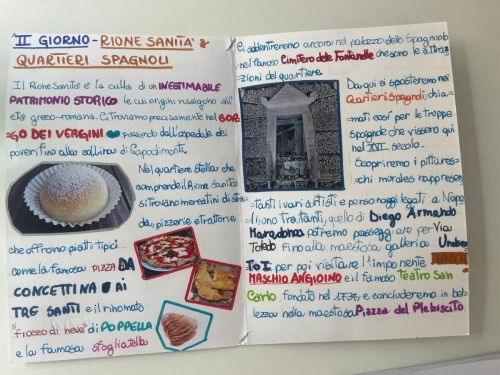 II GIORNO - RIONE SANITA' &
QUARTIERI SPAGNOLI
Il Rione Sanità è la culla di un INESTIMABILE
PATRIMONIO STORICO le cui origini risalgono all'
età greco-romana. Ci troviamo precisamente nel BOR-
GO DEI VERGINI passando dall'ospedale dei
poveri fino alla collina di Capodimonte.
Nel quartiere stella che
comprende il Rione Sanità
si trovano mercatini di stra-
da, pizzerie e trattorie
che offrono piatti tipici
come la famosa PIZZA DA
CONCETTINA AI
TRE SANTI e il rinomato
"fiocco di neve" di POPPELLA
e la famosa sfogliatella
Ci addentreremo ancora nel palazzo dello Spagnolo
nel famoso Cimitero delle Fontanelle che sono le attra-
zioni del quartiere.
Da qui ci sposteremo nei
Quartieri Spagnoli, chia-
mati così per le truppe
spagnole che vissero qui
nel XVI secolo.
Scopriremo i pittores-
chi murales rappresen-
tanti i vari artisti e personaggi legati a Napo-
li, uno tra tanti, quello di Diego Armando
Maradona potremo passeggiare per Via
Toledo fino alla maestosa galleria Umber
To I per poi visitare l'imponente
MASCHIO ANGIOINO e il famoso Teatro San
Carlo fondato nel 1737, e concluderemo in bel-
lezza nella maestosa Piazza del Plebiscito